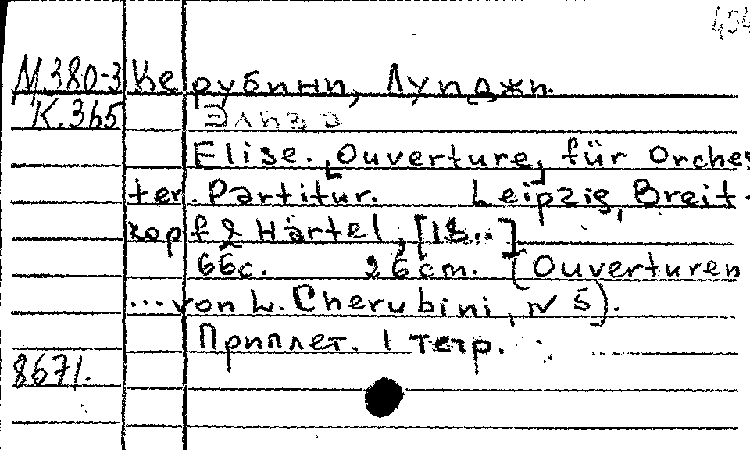 454
М380-3 Керубини, Луиджи.
К.365 Элиза
Elise. [Ouverture] für Orches
ter. Partitur. Leipzig, Breit-
kopf & Härtel, [18..]
66с. 26cm. (Ouverturen
... von L. Cherubini, N 5).
Приплет. 1 тетр.
8671.